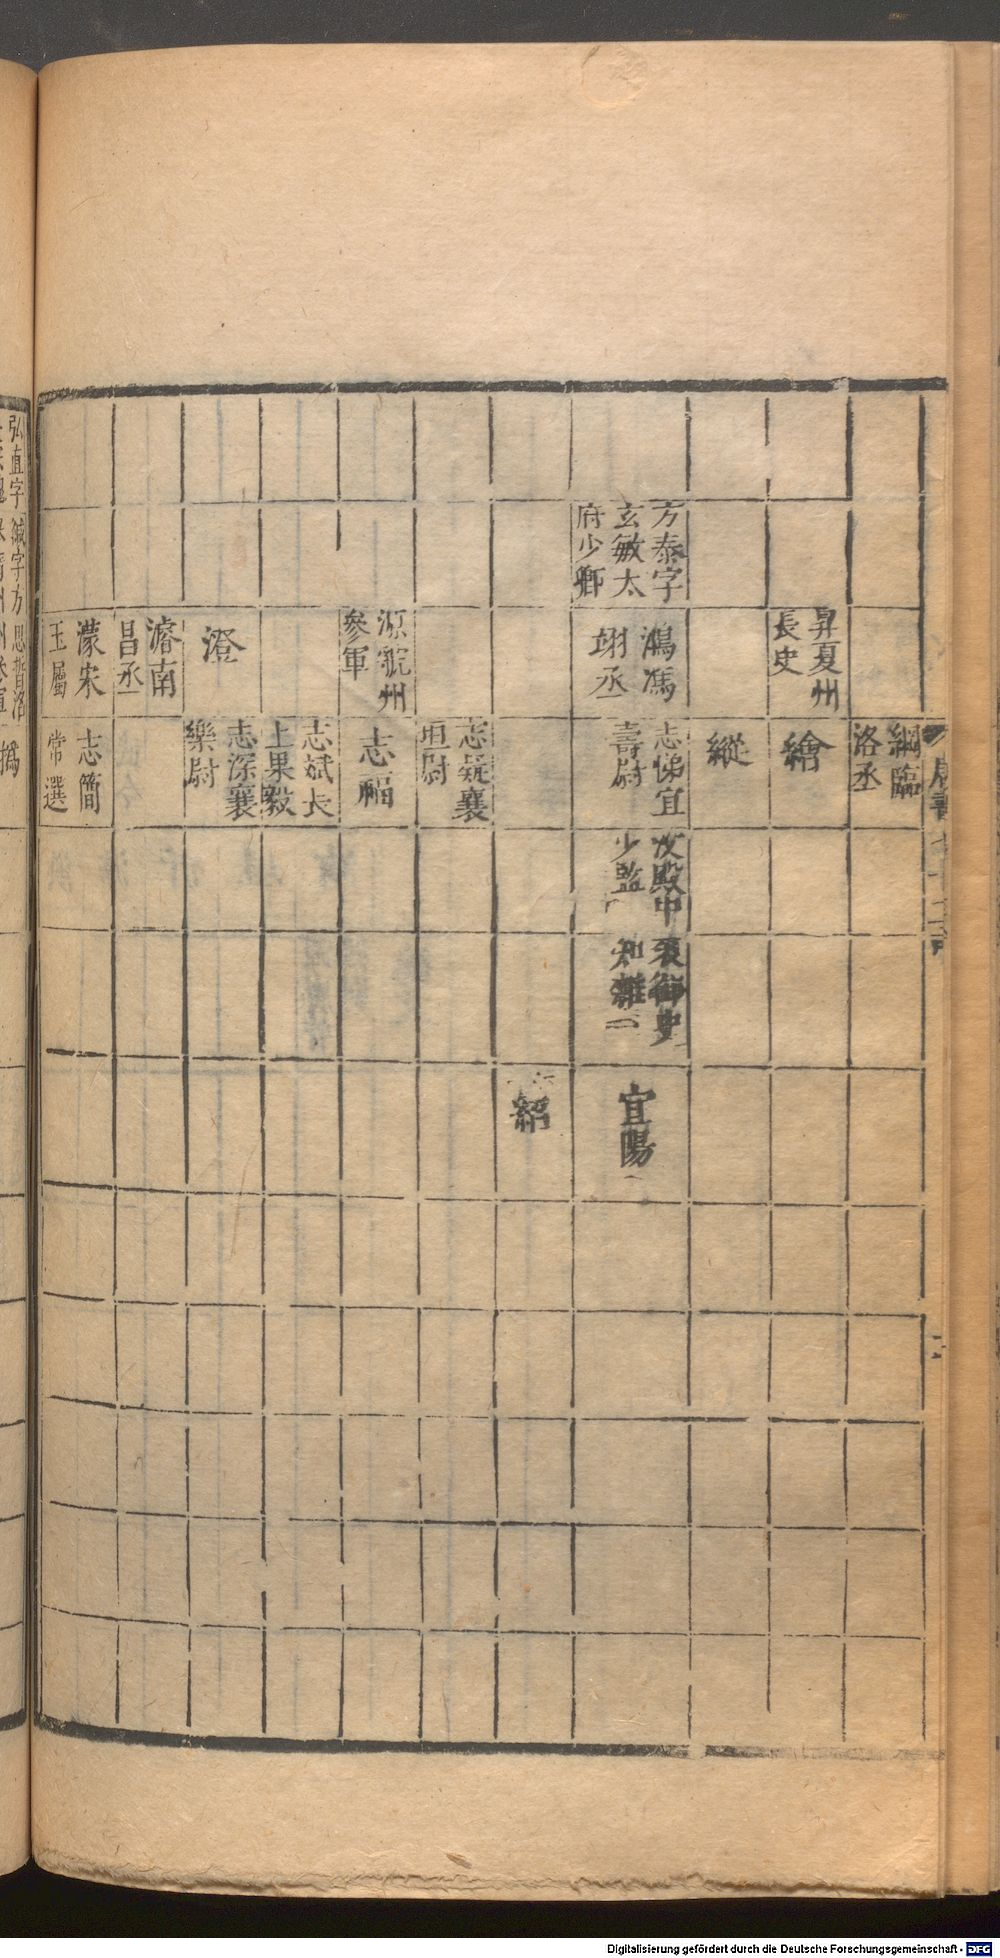 綱臨
洛丞
昇夏州
長史
繪
縱
方泰字
玄敏太
府少卿
鴻馮
翊丞
志悌宜
壽尉
殿中
少監
御史
知雜
宜陽
紹
志疑襄
垣尉
源虢州
參軍
志福
志斌長
上果毅
澄
志深襄
樂尉
濬南
昌丞
濛宋
王屬
志簡
常選
弘直字
緘字方
思哲洛
撝
Digitalisierung gefördert durch die Deutsche Forschungsgemeinschaft - DFG